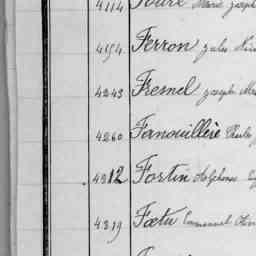 4114 Marie Joseph
4194 Ferron Jules
4243 Fresnel Joseph
4260 Fanouillère Charles
4312 Fortin Alphonse
4319 Fœtu Emmanuel